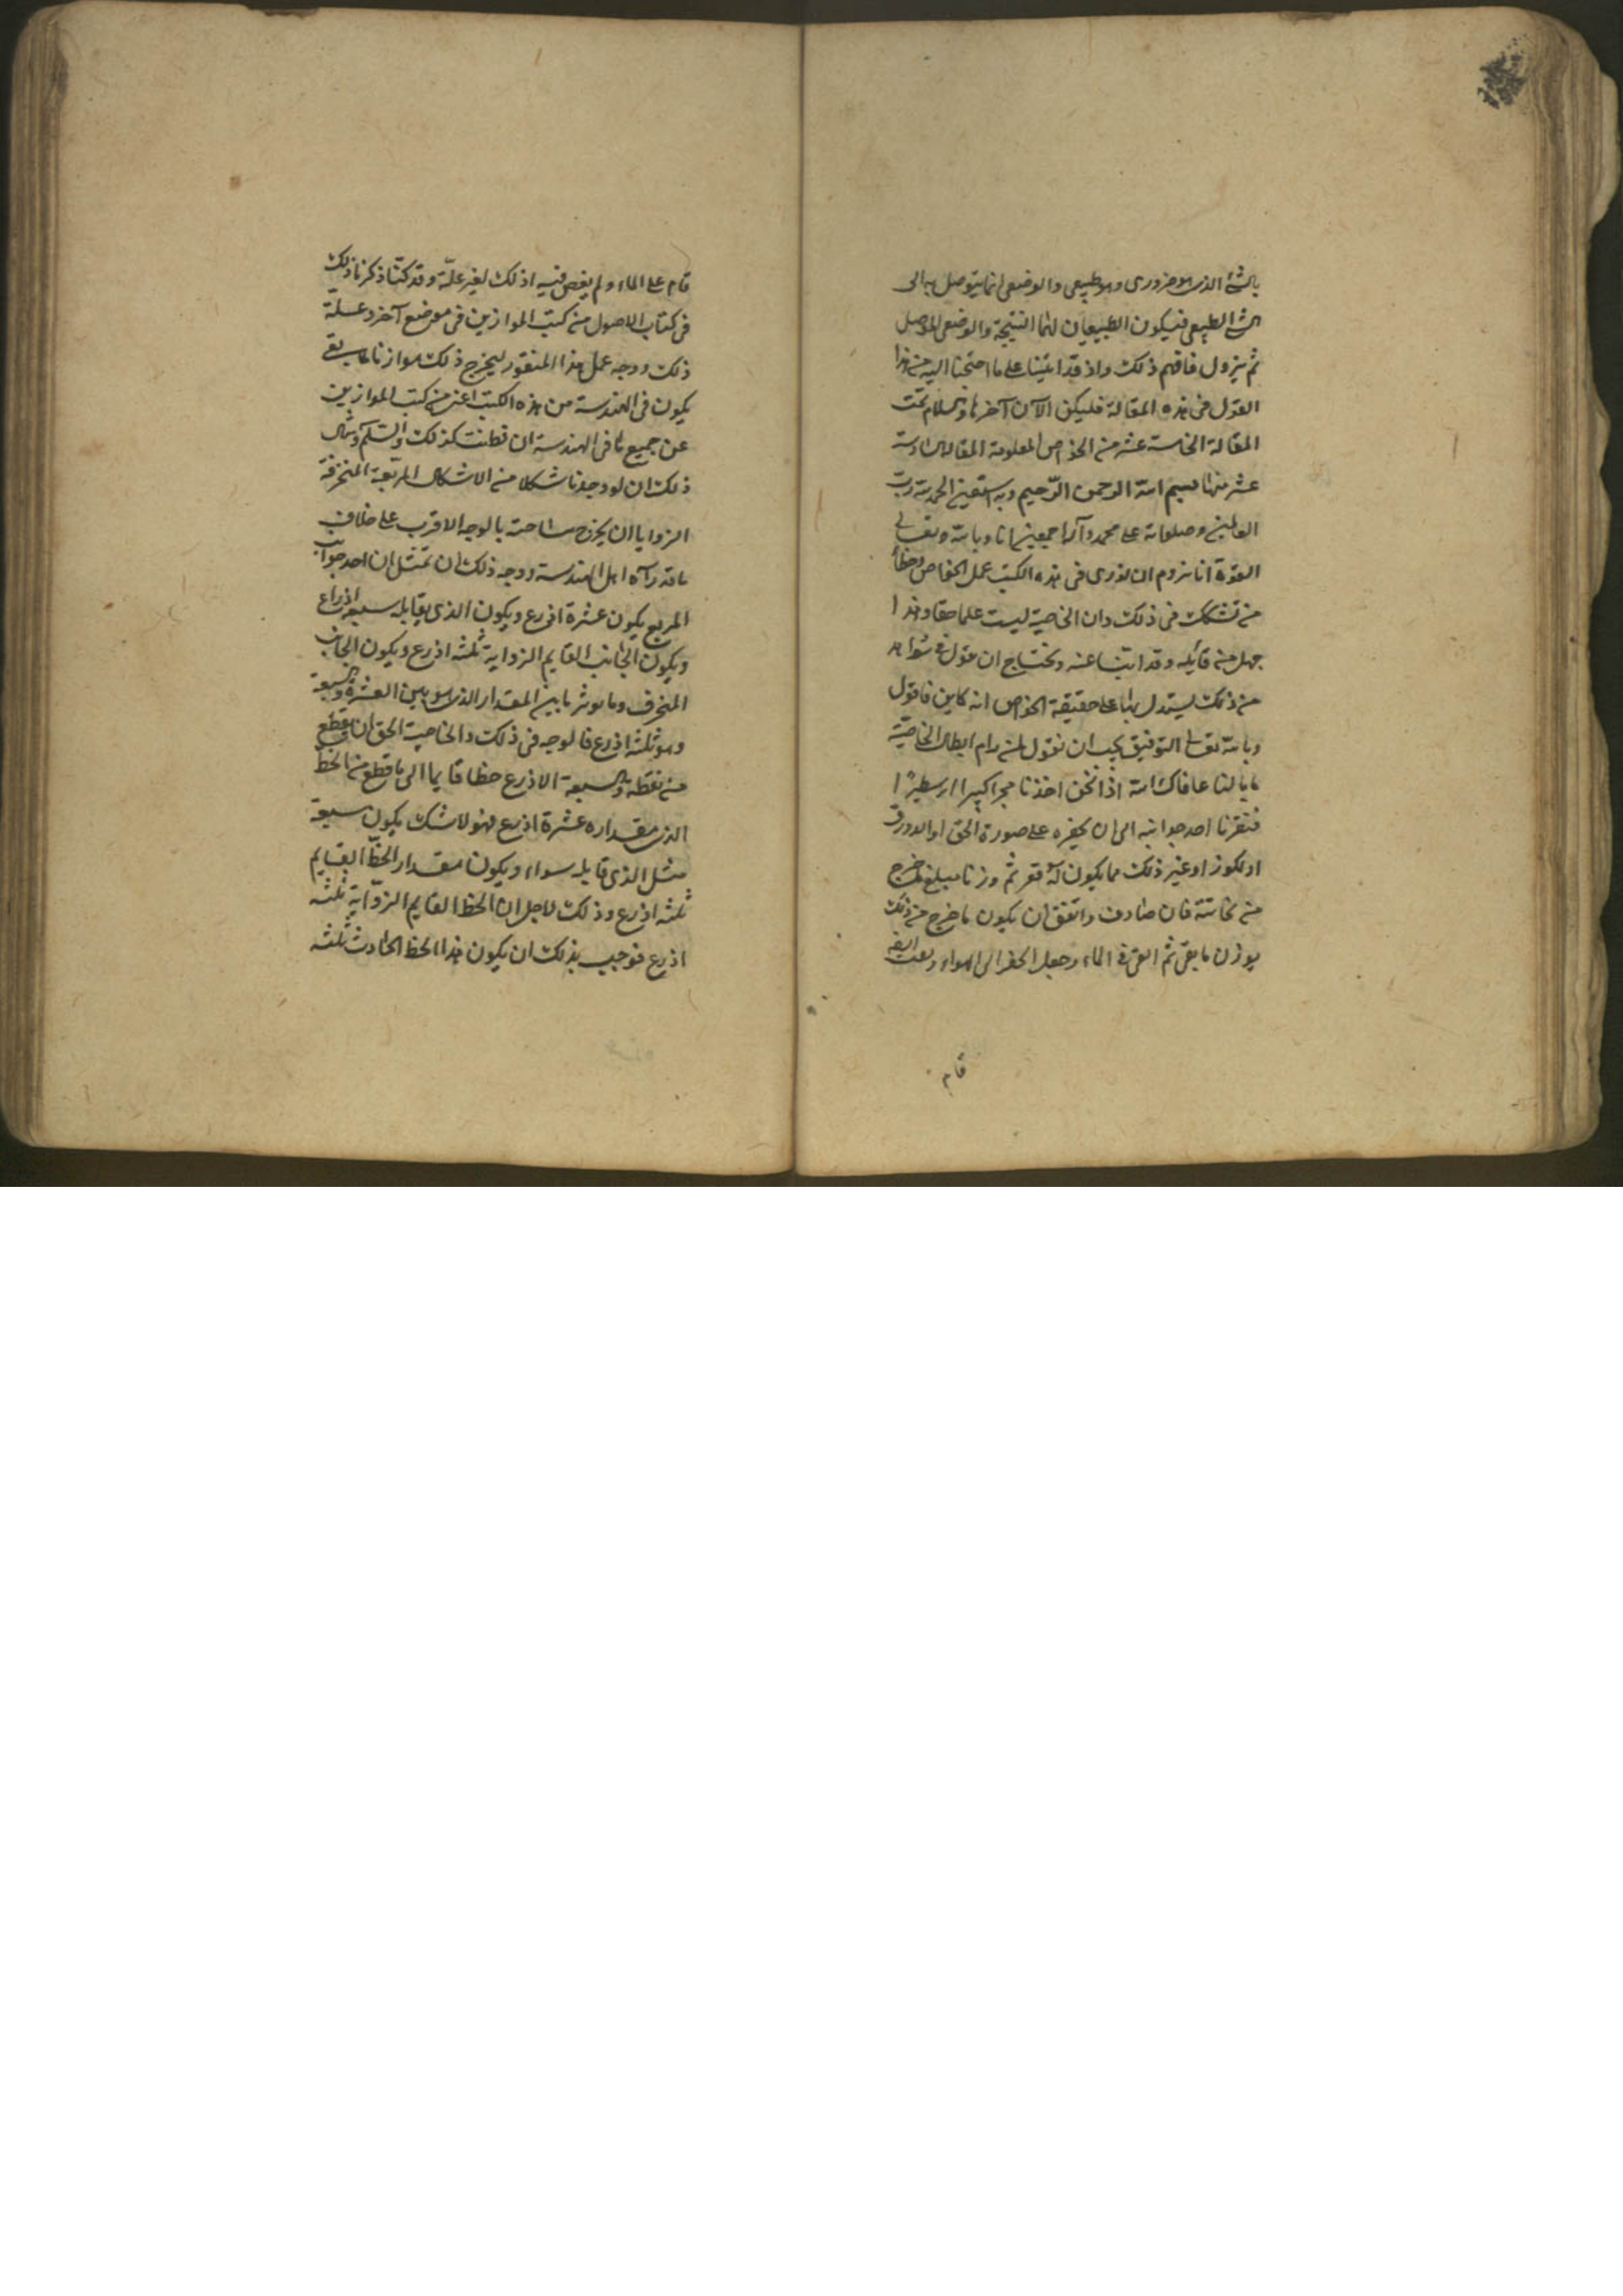 بالشئ الذى هو ضرورى وهو طبيعى والوضعى انما يتوصل به الى
الشئ الطبيعى فيكون الطبيعيان لهما النتيجة والوضعى الموصل
ثم يزول فافهم ذلك واذ قد اتينا على ما احتجنا اليه من هذا
القول فى هذه المقالة فليكن الآن آخرها والسلام تمت
المقالة الخامسة عشر من الخواص المعلومة المقالة السادسة
عشر منها بسم الله الرحمن الرحيم وبه استعين الحمد لله رب
العالمين وصلواته على محمد وآله اجمعين انا وبالله وتعالى
القوة انا نروم ان نورى فى هذه الكتب عمل الخواص وخطأ
من تشكك فى ذلك وان الخاصية ليست علما حقا وهذا
جهل من قائله وقد اتينا عنه ونحتاج ان نقول فى شواهد
من ذلك يستدل بها على حقيقة الخواص انه كاين فاقول
وبالله تعالى التوفيق يجب ان نقول لمن رام ابطال الخاصية
ما بالنا عافاك الله اذا نحن اخذنا حجرا كبيرا ارسطيرا
فنقرنا احد جوانبه الى ان نحفره على صورة الحق او الدورق
او الكوز او غير ذلك مما يكون له قعر ثم وزنا مبلغ ما خرج
من نحاتته فان صادف واتفق ان يكون ما خرج من ذلك
بوزن ما بقى ثم القى فى الماء وجعل الحفر الى الهواء
قام
قام على الماء ولم يغص فيه اذ لك لغير علة وقد كنا ذكرنا ذلك
فى كتاب الاصول من كتب الموازين فى موضع آخر وعلة
ذلك ووجه عمل هذا المنقور ليخرج ذلك موازنا لما بقى
يكون فى الهندسة من هذه الكتب اعنى من كتب الموازين
عن جميع ما فى الهندسة ان فطنت كذلك والسلم ومثال
ذلك ان لو وجدنا شكلا من الاشكال المربعة المنحرفة
الزوايا ان يخرج مساحته بالوجه الاقرب على خلاف
ما قد رآه اهل الهندسة ووجه ذلك ان تمثل ان احد جوانب
المربع يكون عشرة اذرع ويكون الذى يقابله سبعة اذرع
ويكون الجانب القايم الزواية ثلثه اذرع ويكون الجانب
المنحرف وما يوثر ما بين المقدار الذى هو بين العشرة والسبعة
وهو ثلثه اذرع فالوجه فى ذلك والخاصية الحق ان يقطع
من نقطة والسبعة الاذرع خطا قايما الى ما قطع من الخط
الذى مقداره عشرة اذرع فهو لا شك يكون سبعة
مثل الذى قابله سواء ويكون مقدار الخط القايم
ثلثه اذرع وذلك لاجل ان الخط القايم الزواية ثلثه
اذرع فوجب بذلك ان يكون هذا الخط الحادث ثلثه